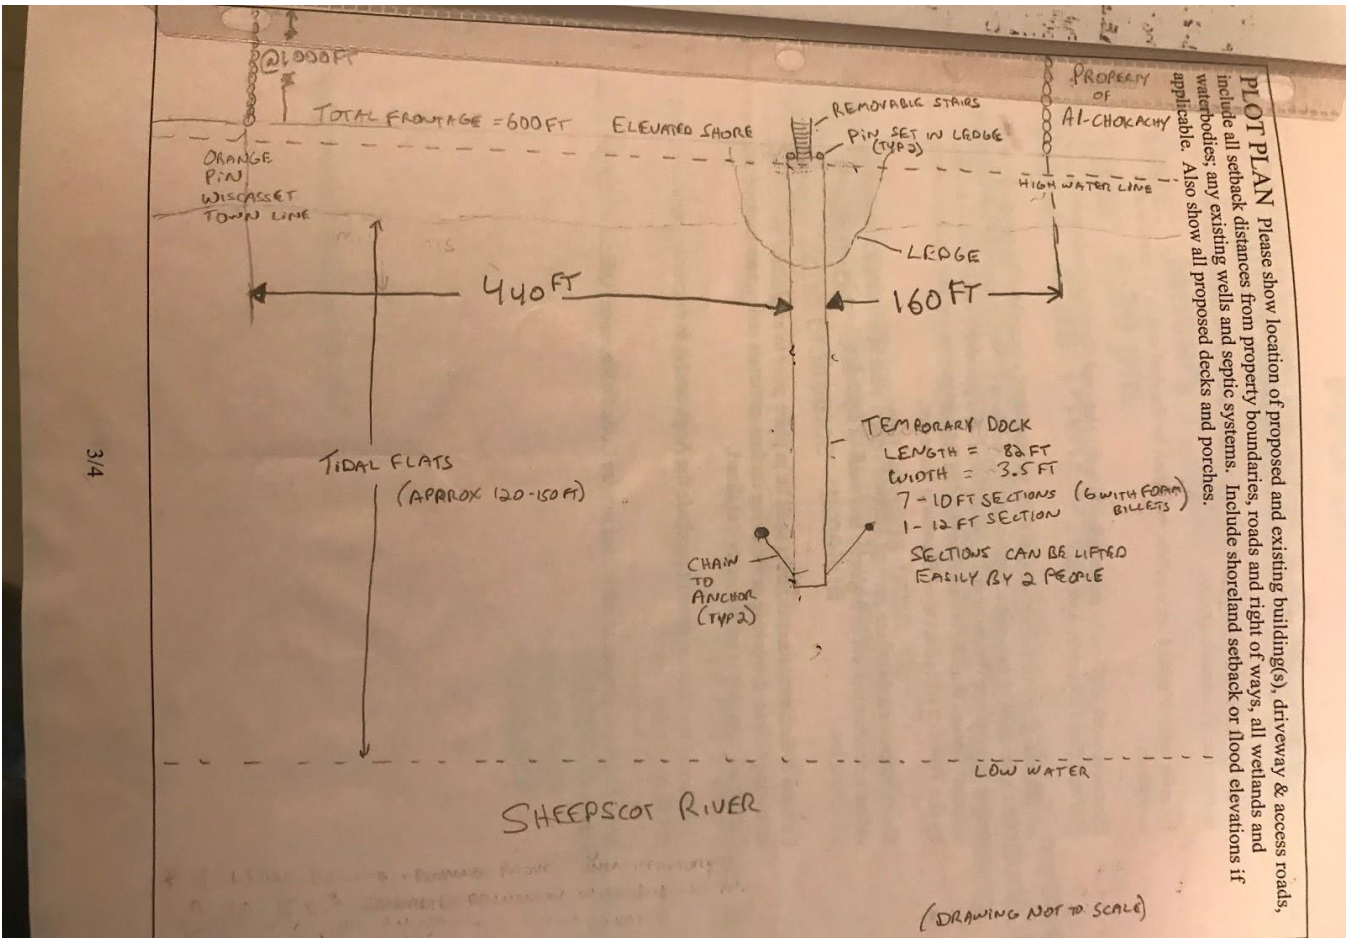 PLOT PLAN Please show location of proposed and existing building(s), driveway & access roads,
include all setback distances from property boundaries, roads and right of ways, all wetlands and
waterbodies; any existing wells and septic systems. Include shoreland setback or flood elevations if
applicable. Also show all proposed decks and porches.
@1000FT
TOTAL FRONTAGE = 600FT
ELEVATED SHORE
REMOVABLE STAIRS
PIN SET IN LEDGE
(TYP 2)
PROPERTY
OF
Al-CHOKACHY
ORANGE
PIN
WISCASSET
TOWN LINE
HIGH WATER LINE
LEDGE
440FT
160FT
TIDAL FLATS
(APPROX 120-150FT)
TEMPORARY DOCK
LENGTH = 82FT
WIDTH = 3.5FT
7-10FT SECTIONS (6 WITH FOAM
BILLETS)
1-12FT SECTION
SECTIONS CAN BE LIFTED
EASILY BY 2 PEOPLE
CHAIN
TO
ANCHOR
(TYP 2)
LOW WATER
SHEEPSCOT RIVER
(DRAWING NOT TO SCALE)
3/4